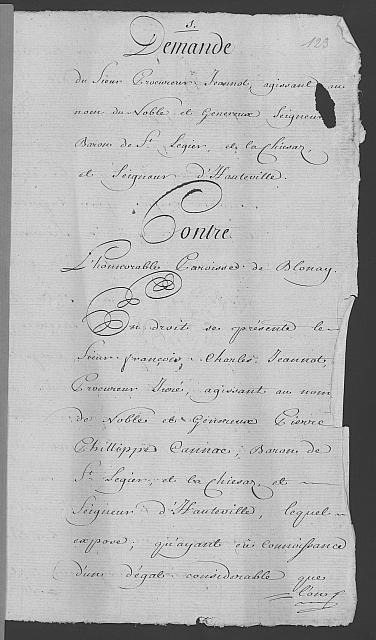 1.
123
Demande
du Sieur Procureur Jeannot, agissant au
nom du Noble et Genereux Seigneur
Baron de St. Legier, et la Chiesaz,
et Seigneur d'Hauteville.
Contre
L'honnorable Paroisse de Blonay.
En droit se présente le
Sieur françois, Charles, Jeannot,
Procureur Juré, agissant au nom
de Noble et Génereux Pierre
Phillippe Cannac, Baron de
St. Legier, et la Chiesaz, et
Seigneur d'Hauteville, lequel
expose; qu'ayant eû connoissance
d'un dégat considerable que
l'on